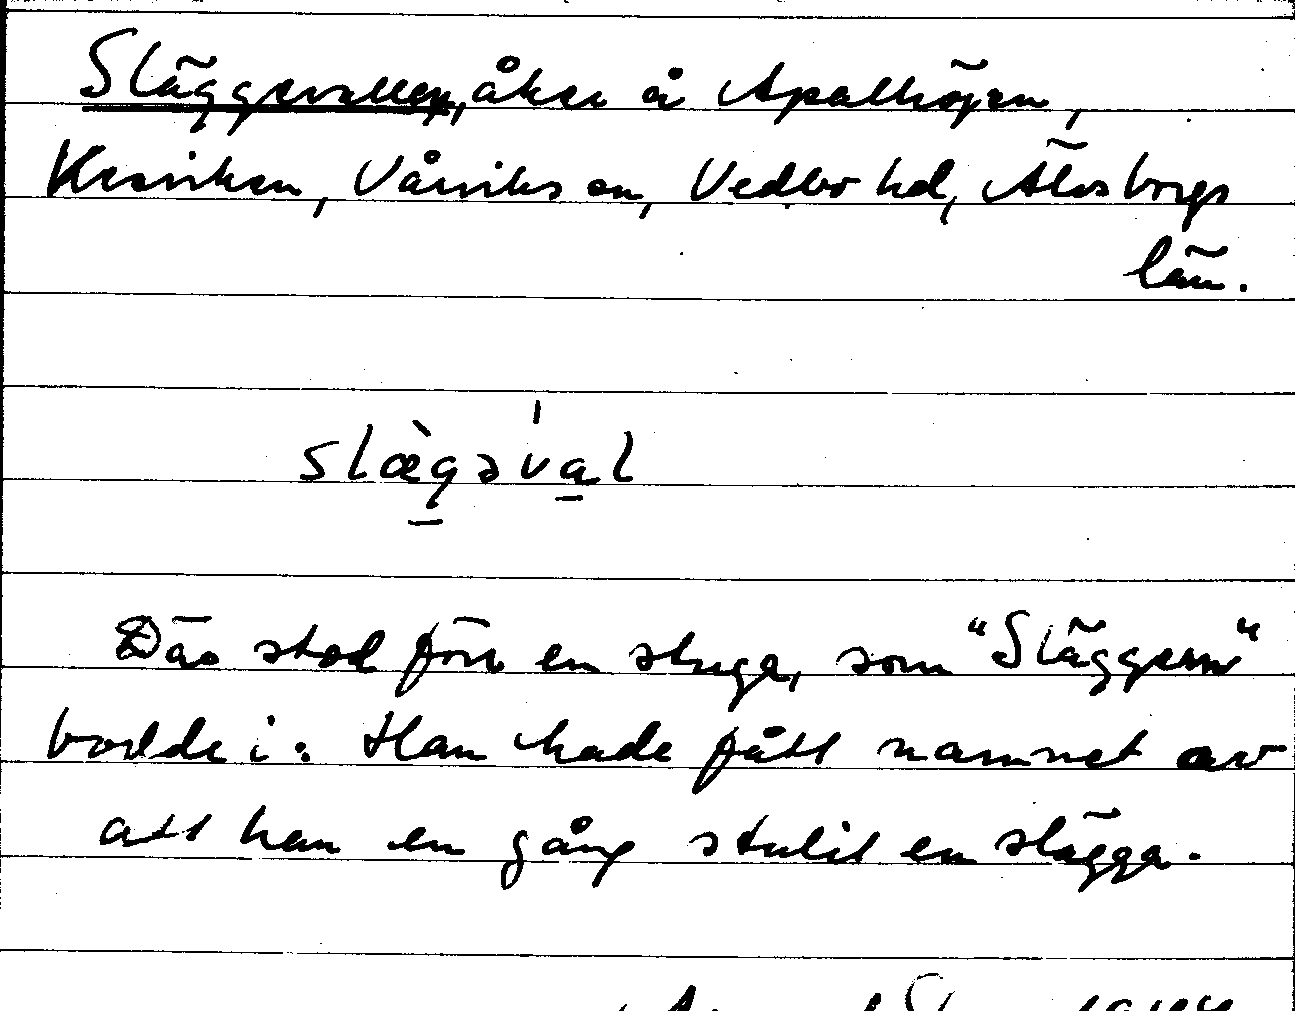 Släggevallen, åker å Apalhöjen,
Kesviken, Vårviks sn, Vedbo hd, Älvsborgs
län.
slæ̀gəval
Där stod förr en stuga, som "Släggern"
bodde i. Han hade fått namnet av
att han en gång stulit en slägga.